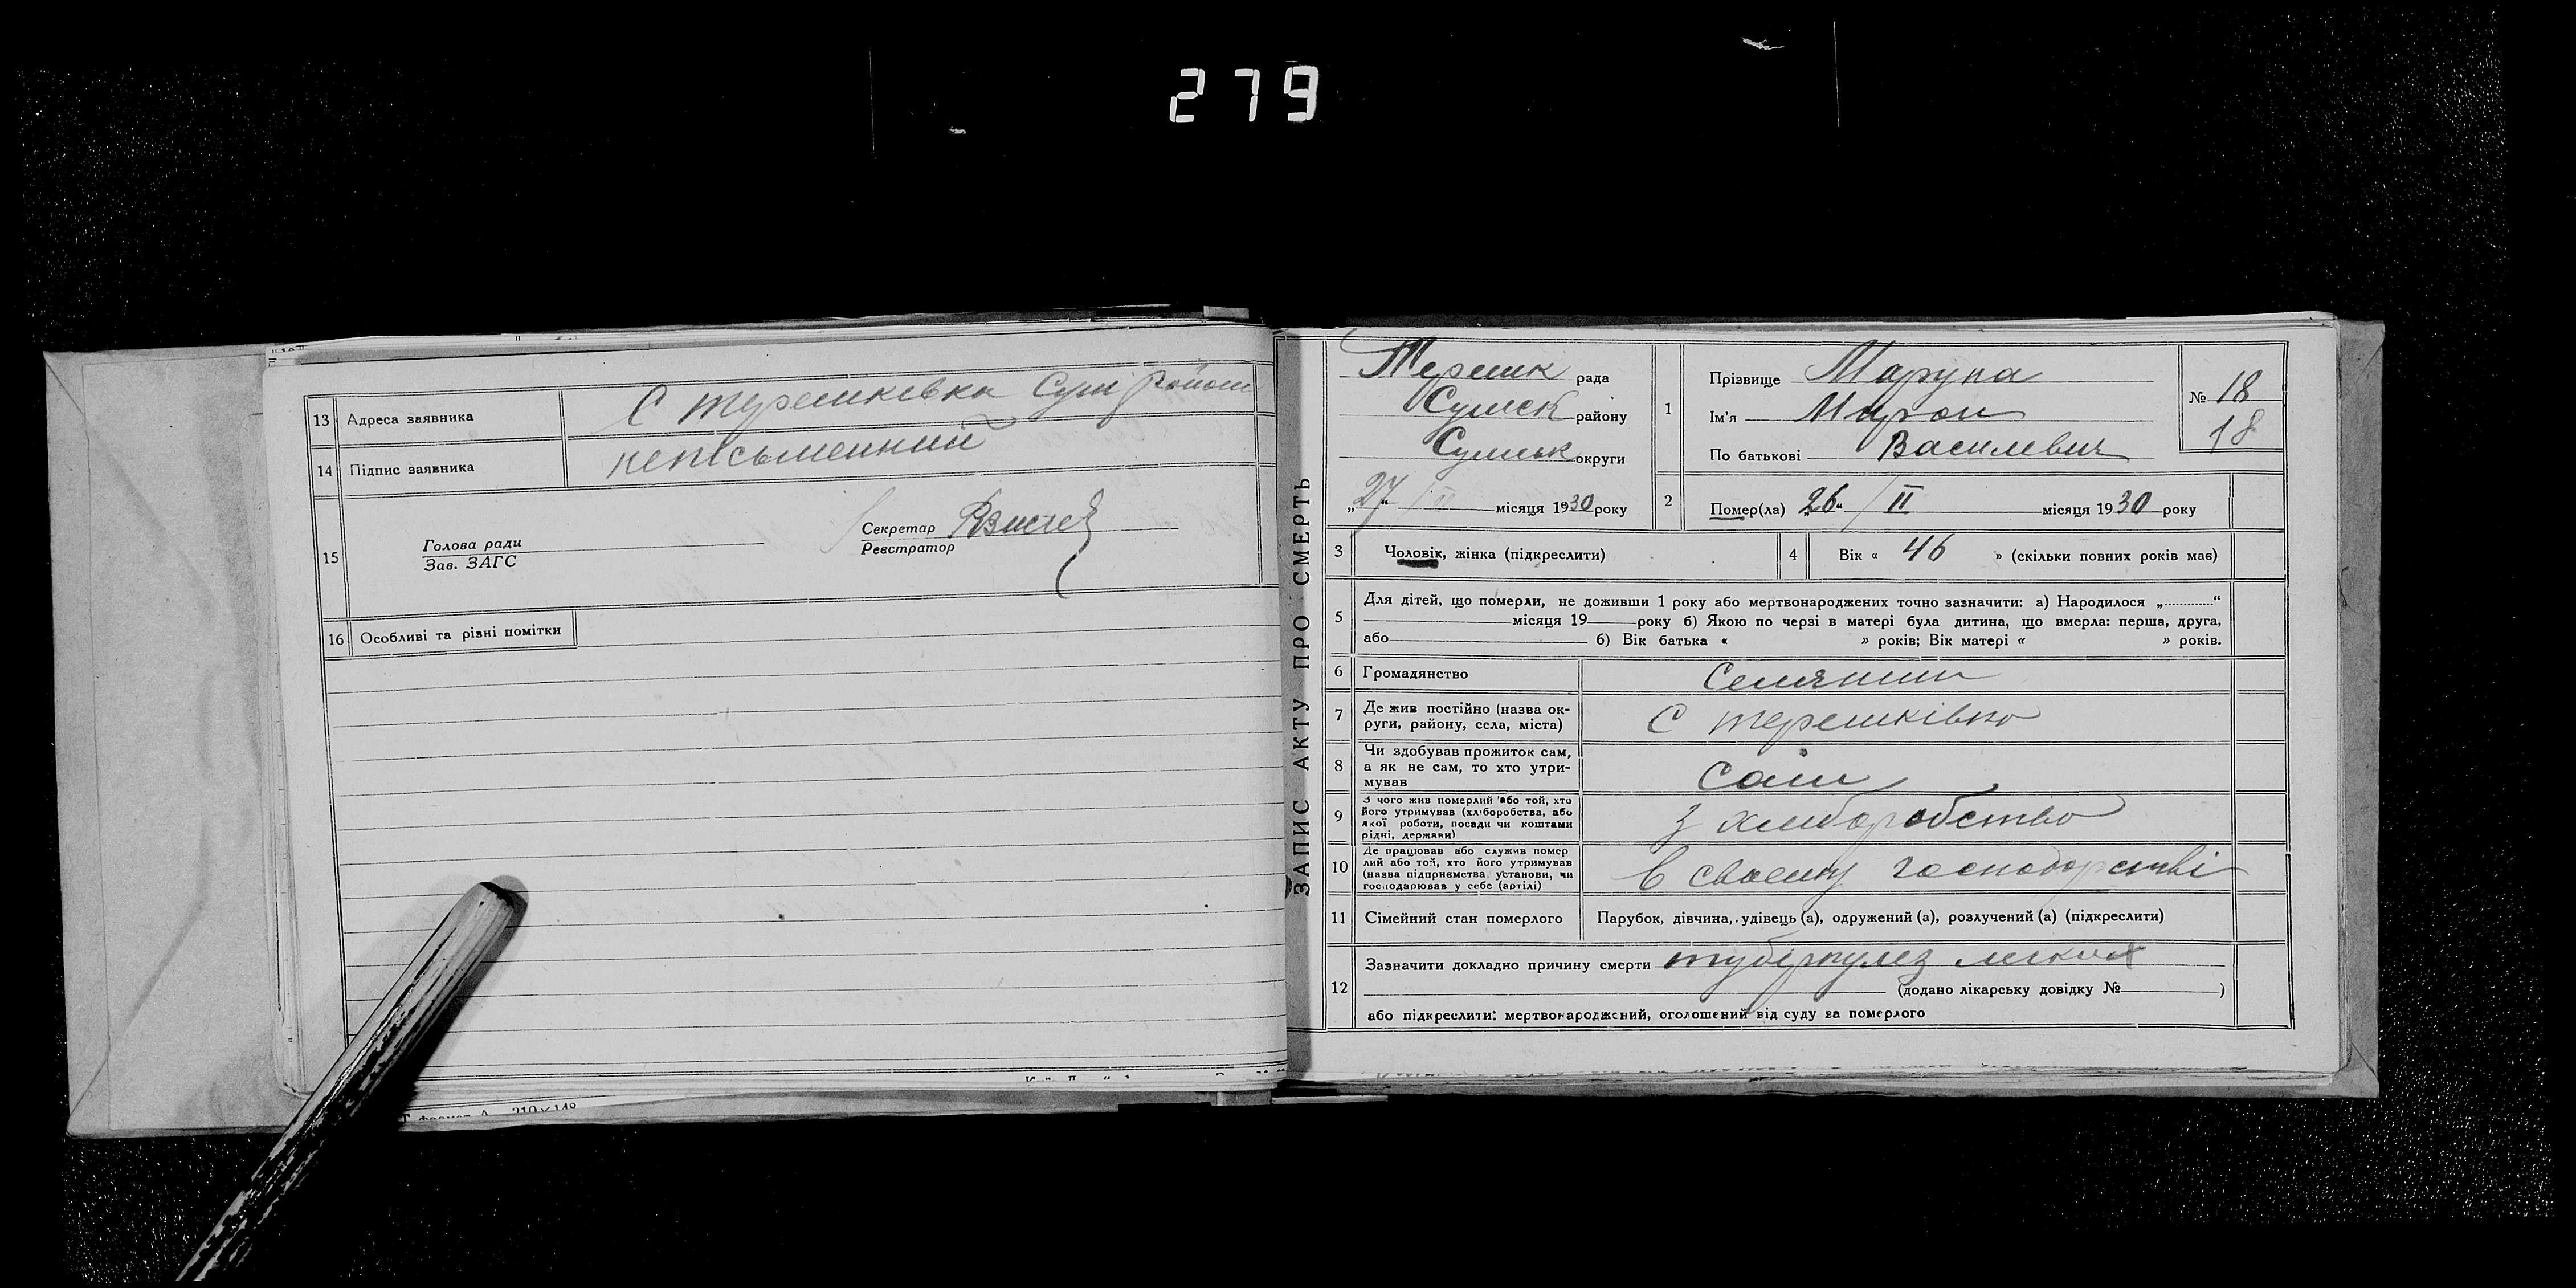 279
13 Адреса заявника С терешківка Сум район
14 Підпис заявника неписьменний
15 Голова ради
Зав. ЗАГС
Секретар
Реєстратор
16 Особливі та різні помітки
ЗАПИС АКТУ ПРО СМЕРТЬ
Терешк рада
Сумск району
Сумськ округи
„27“ / II місяця 1930 року
1 Прізвище Марупа
Ім'я Мирон
По батькові Василевич
№ 18
18
2 Помер(ла) „26“ / II місяця 1930 року
3 Чоловік, жінка (підкреслити)
4 Вік « 46 » (скільки повних років має)
5 Для дітей, що померли, не доживши 1 року або мертвонароджених точно зазначити: а) Народилося „............“
місяця 19 року б) Якою по черзі в матері була дитина, що вмерла: перша, друга,
або б) Вік батька « » років; Вік матері « » років.
6 Громадянство Селянин
7 Де жив постійно (назва ок-
руги, району, села, міста) С терешківка
8 Чи здобував прожиток сам,
а як не сам, то хто утри-
мував сам
9 З чого жив померлий або той, хто
його утримував (хліборобства, або
якої роботи, посади чи коштами
рідні, держави) З хліборобства
10 Де працював або служив помер
лий або той, хто його утримував
(назва підприємства, установи, чи
господарював у себе (артілі) в своєму господарстві
11 Сімейний стан померлого Парубок, дівчина, удівець (а), одружений (а), розлучений (а) (підкреслити)
12 Зазначити докладно причину смерти туберкулез легких
(додано лікарську довідку № )
або підкреслити: мертвонароджений, оголошений від суду за померлого